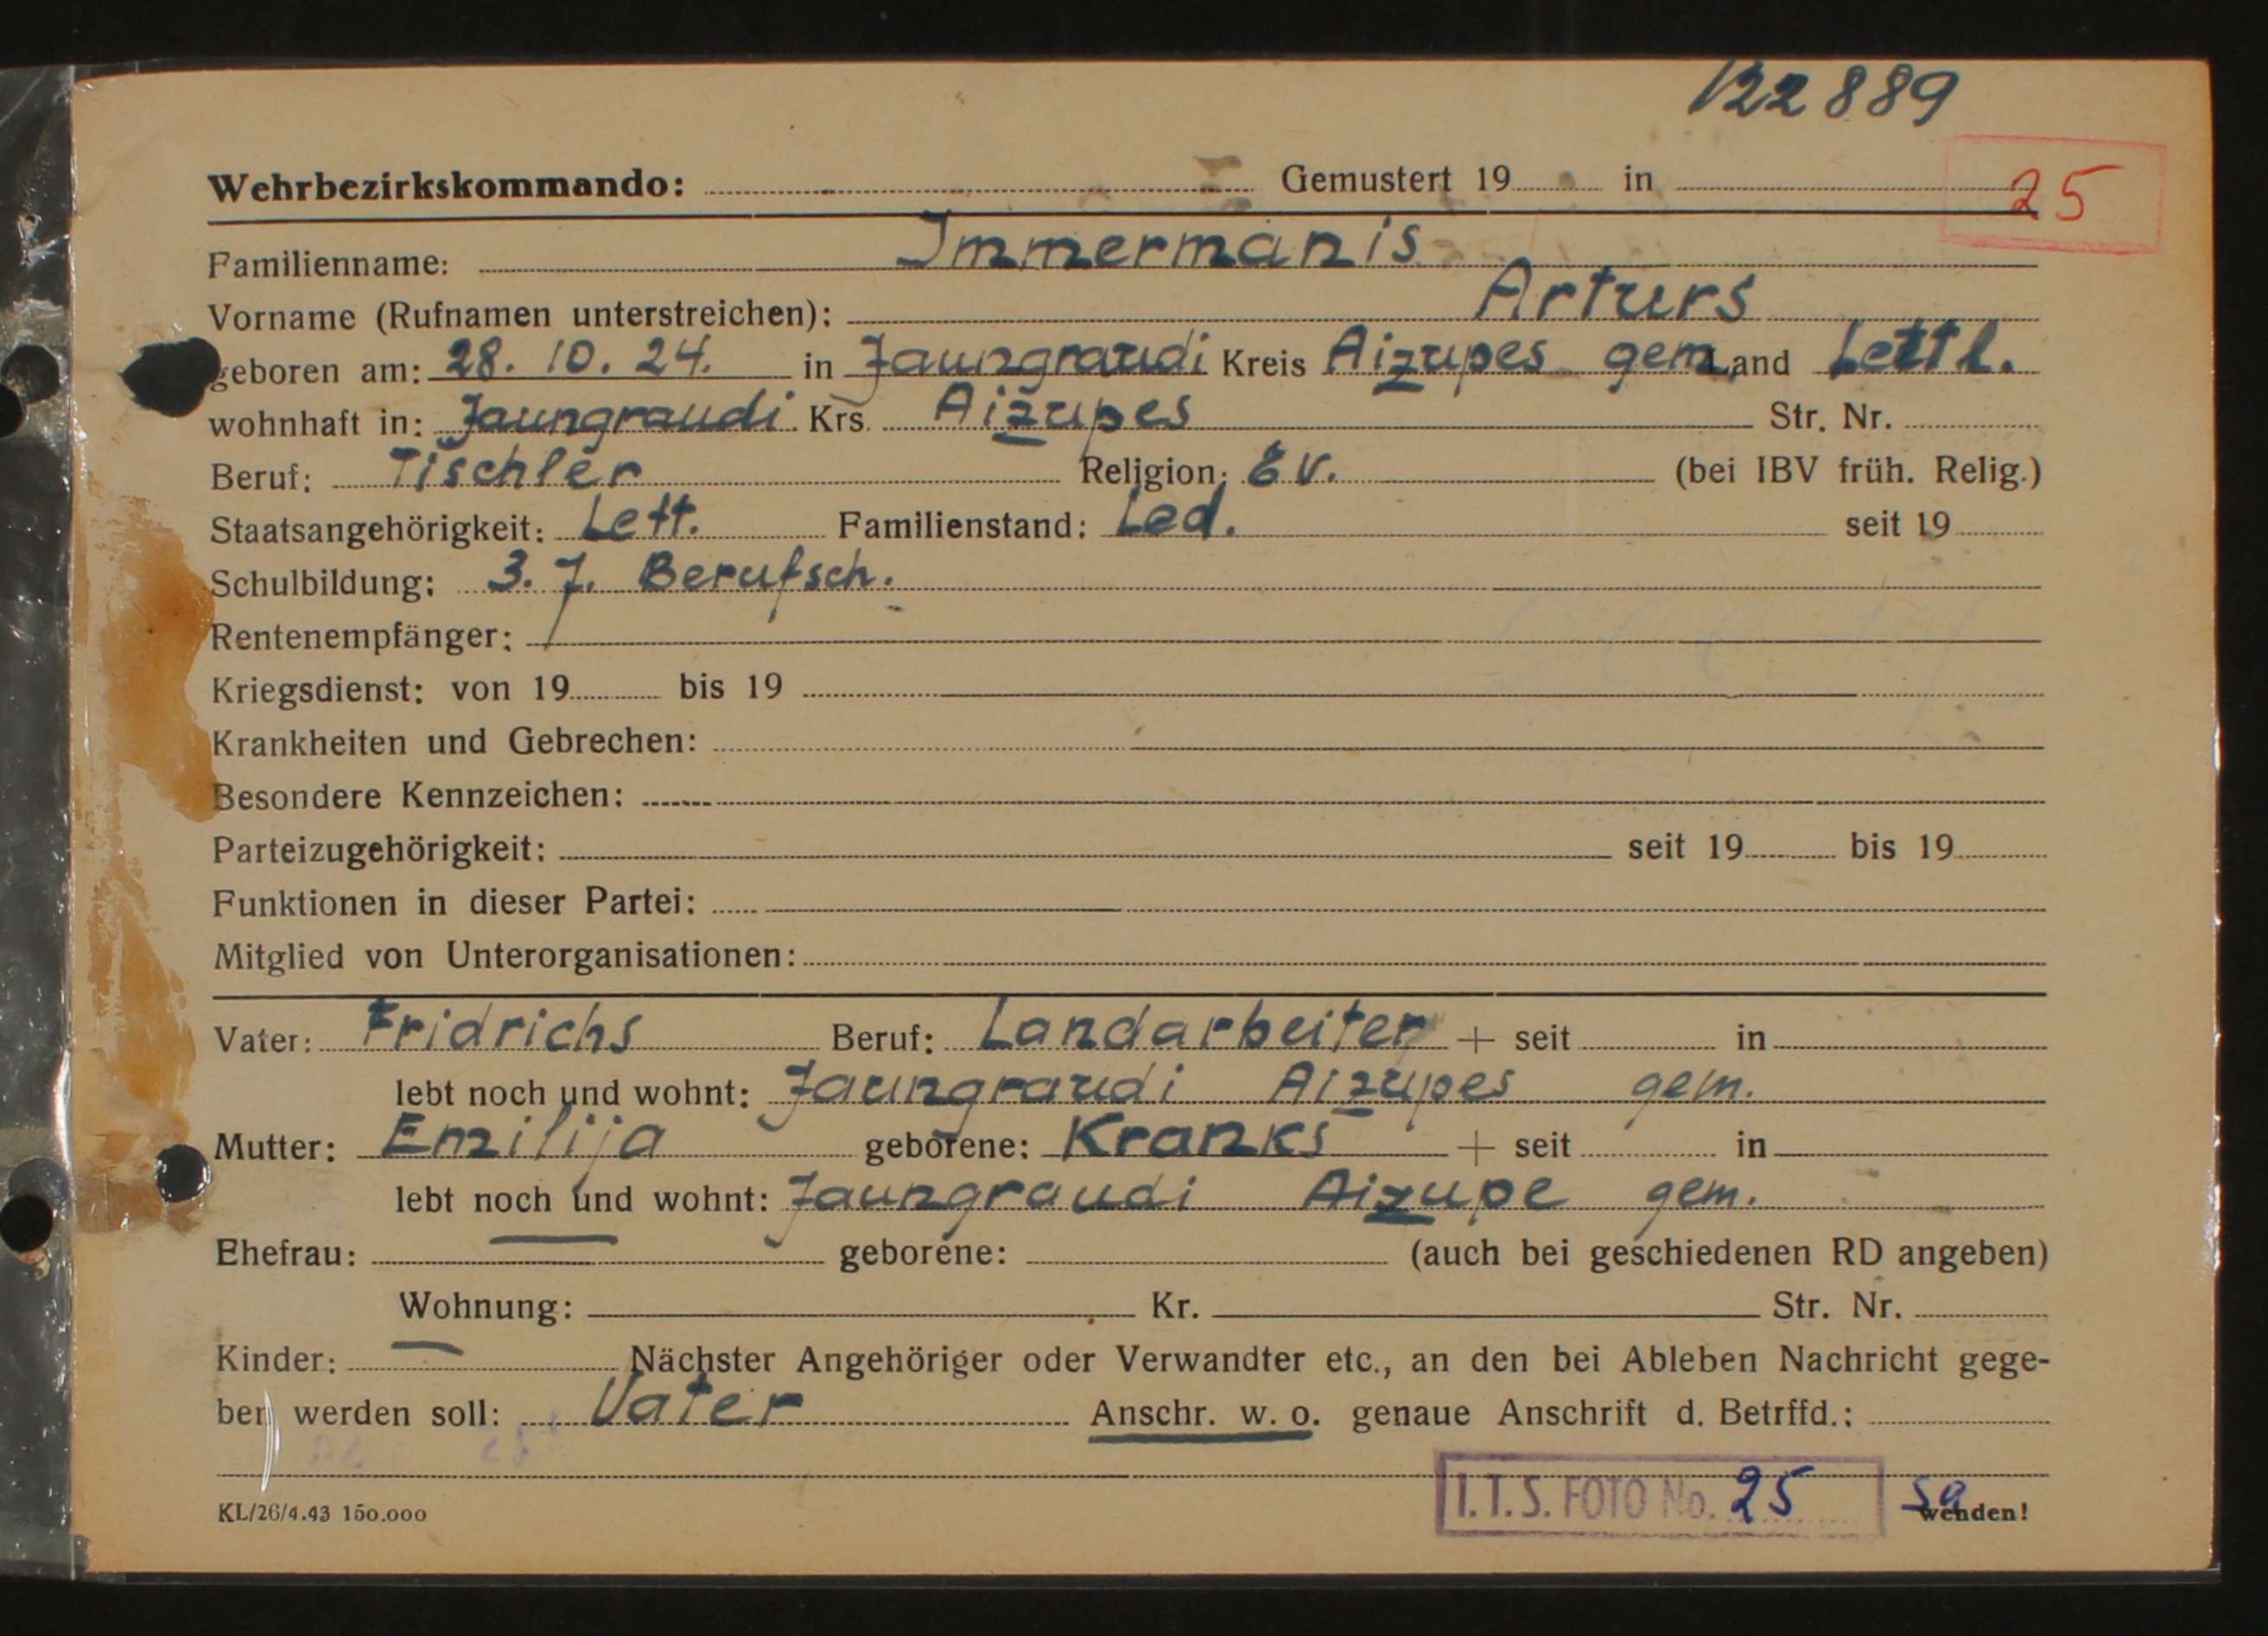 122889
Wehrbezirkskommando: Gemustert 19 in
25
Familienname: Immermanis
Vorname (Rufnamen unterstreichen): Arturs
geboren am: 28. 10. 24. in Jaungraudi Kreis Aizupes gem. Land Lettl.
wohnhaft in: Jaungraudi Krs. Aizupes Str. Nr.
Beruf: Tischler Religion: Ev. (bei IBV früh. Relig.)
Staatsangehörigkeit: Lett. Familienstand: Led. seit 19
Schulbildung: 3. J. Berufsch.
Rentenempfänger:
Kriegsdienst: von 19 bis 19
Krankheiten und Gebrechen:
Besondere Kennzeichen:
Parteizugehörigkeit: seit 19 bis 19
Funktionen in dieser Partei:
Mitglied von Unterorganisationen:
Vater: Fridrichs Beruf: Landarbeiter + seit in
lebt noch und wohnt: Jaungraudi Aizupes gem.
Mutter: Emilija geborene: Kranks + seit in
lebt noch und wohnt: Jaungraudi Aizupe gem.
Ehefrau: geborene: (auch bei geschiedenen RD angeben)
Wohnung: Kr. Str. Nr.
Kinder: — Nächster Angehöriger oder Verwandter etc., an den bei Ableben Nachricht gege-
ben werden soll: Vater Anschr. w. o. genaue Anschrift d. Betrffd.:
I.T.S. FOTO No. 25
KL/26/4.43 150.000 wenden!